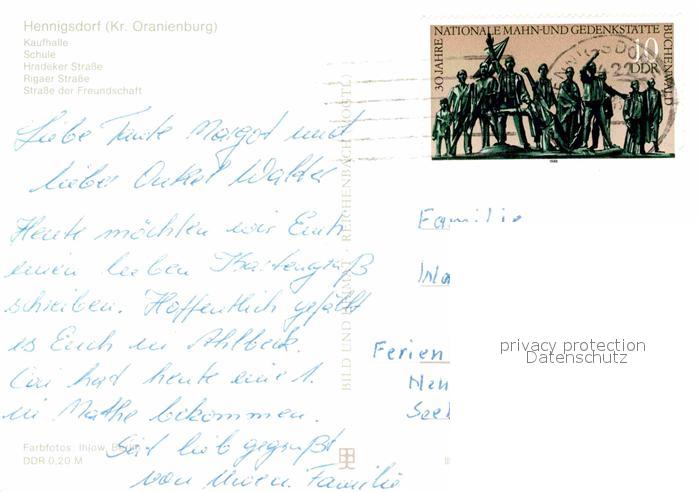 Hennigsdorf (Kr. Oranienburg)
Kaufhalle
Schule
Hradeker Straße
Rigaer Straße
Straße der Freundschaft
30 JAHRE NATIONALE MAHN-UND GEDENKSTÄTTE BUCHENWALD
10
DDR
1988
Liebe Tante Margot und
lieber Onkel Walter
Heute möchten wir Euch
einen lieben Kartengruß
schreiben. Hoffentlich gefällt
es Euch in Ahlbeck.
hat heute eine 1.
in Mathe bekommen.
Seid lieb gegrüßt
von Familie
Familie
Ferien
See
privacy protection
Datenschutz
BILD UND HEIMAT · REICHENBACH (VOGTL)
Farbfotos: Ihlow, Berlin
DDR 0,20 M